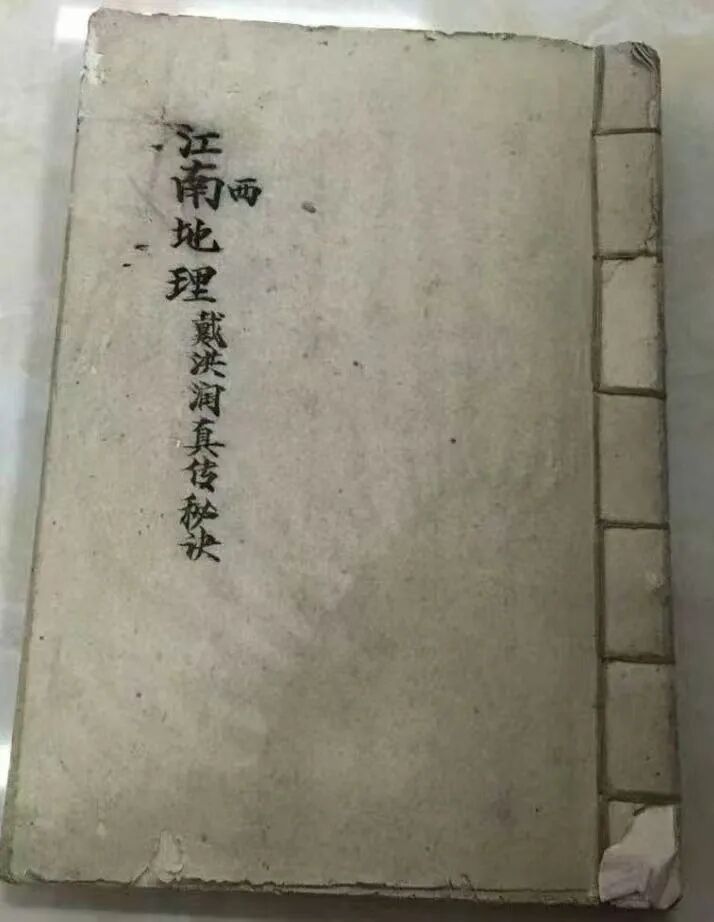 江南西地理戴洪润真传秘诀